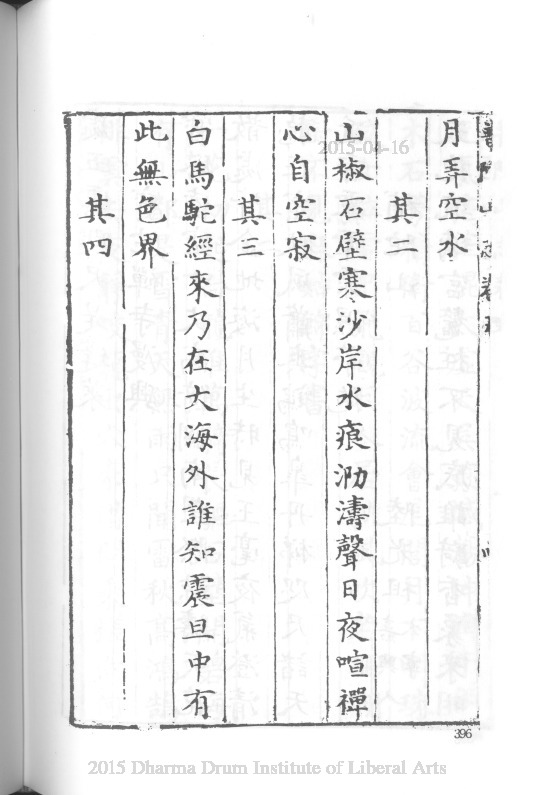 月弄空水
其二
山椒石壁寒沙岸水痕泐濤聲日夜喧禪
心自空寂
其三
白馬駝經來乃在大海外誰知震旦中有
此無色界
其四
2015-04-16
396
2015 Dharma Drum Institute of Liberal Arts